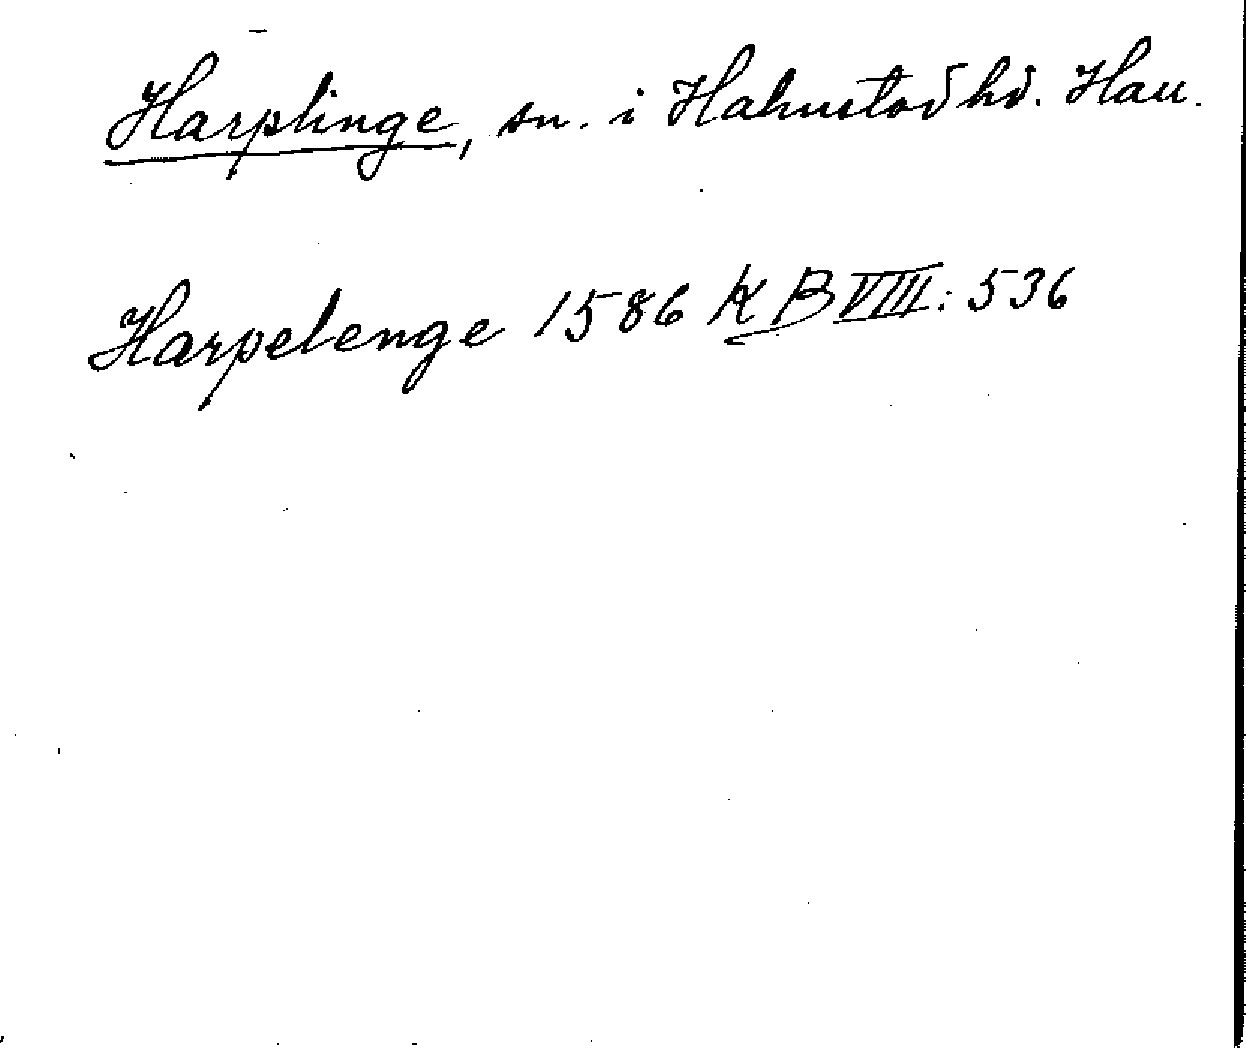 Harplinge, sn. i Halmstad hd. Hall.
Harpelenge 1586 KB VIII: 536